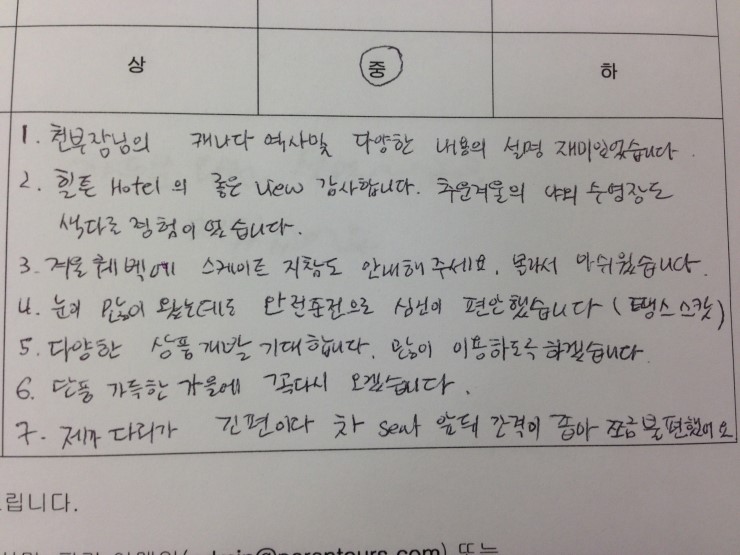 상 중 하
1. 천부장님의 캐나다 역사및 다양한 내용의 설명 재미있었습니다.
2. 힐튼 Hotel 의 좋은 view 감사합니다. 추운겨울의 야외 수영장도
색다른 경험이 였습니다.
3. 겨울 퀘벡에 스케이트 지참도 안내해 주세요. 몰라서 아쉬웠습니다.
4. 눈이 많이 왔는데도 안전운전으로 심신이 편안했습니다 (땡스 스캇)
5. 다양한 상품개발 기대합니다. 많이 이용하도록 하겠습니다.
6. 단풍 가득한 가을에 꼭다시 오겠습니다.
7. 제가 다리가 긴편이라 차 seat 앞뒤 간격이 좁아 쪼금 불편했어요
립니다.